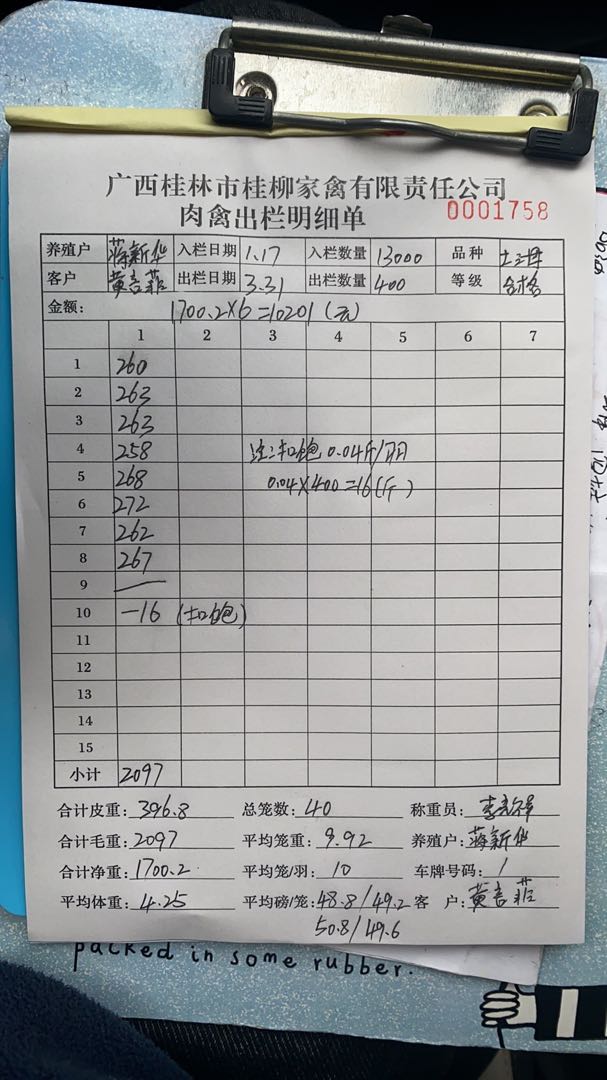 广西桂林市桂柳家禽有限责任公司
肉禽出栏明细单 0001758
养殖户 蒋新华 入栏日期 1.17 入栏数量 13000 品种 土2母
客户 黄言菲 出栏日期 3.31 出栏数量 400 等级 合格
金额: 1700.2×6=10201(元)
1 2 3 4 5 6 7
1 260
2 263
3 263
4 258 注:扣饱 0.04斤/羽
5 268 0.04×400=16(斤)
6 272
7 262
8 267
9 —
10 -16 (扣饱)
11
12
13
14
15
小计 2097
合计皮重: 396.8 总笼数: 40 称重员:
合计毛重: 2097 平均笼重: 9.92 养殖户: 蒋新华
合计净重: 1700.2 平均笼/羽: 10 车牌号码: /
平均体重: 4.25 平均磅/笼: 48.8/49.2 客 户: 黄言菲
50.8/49.6
packed in some rubber.